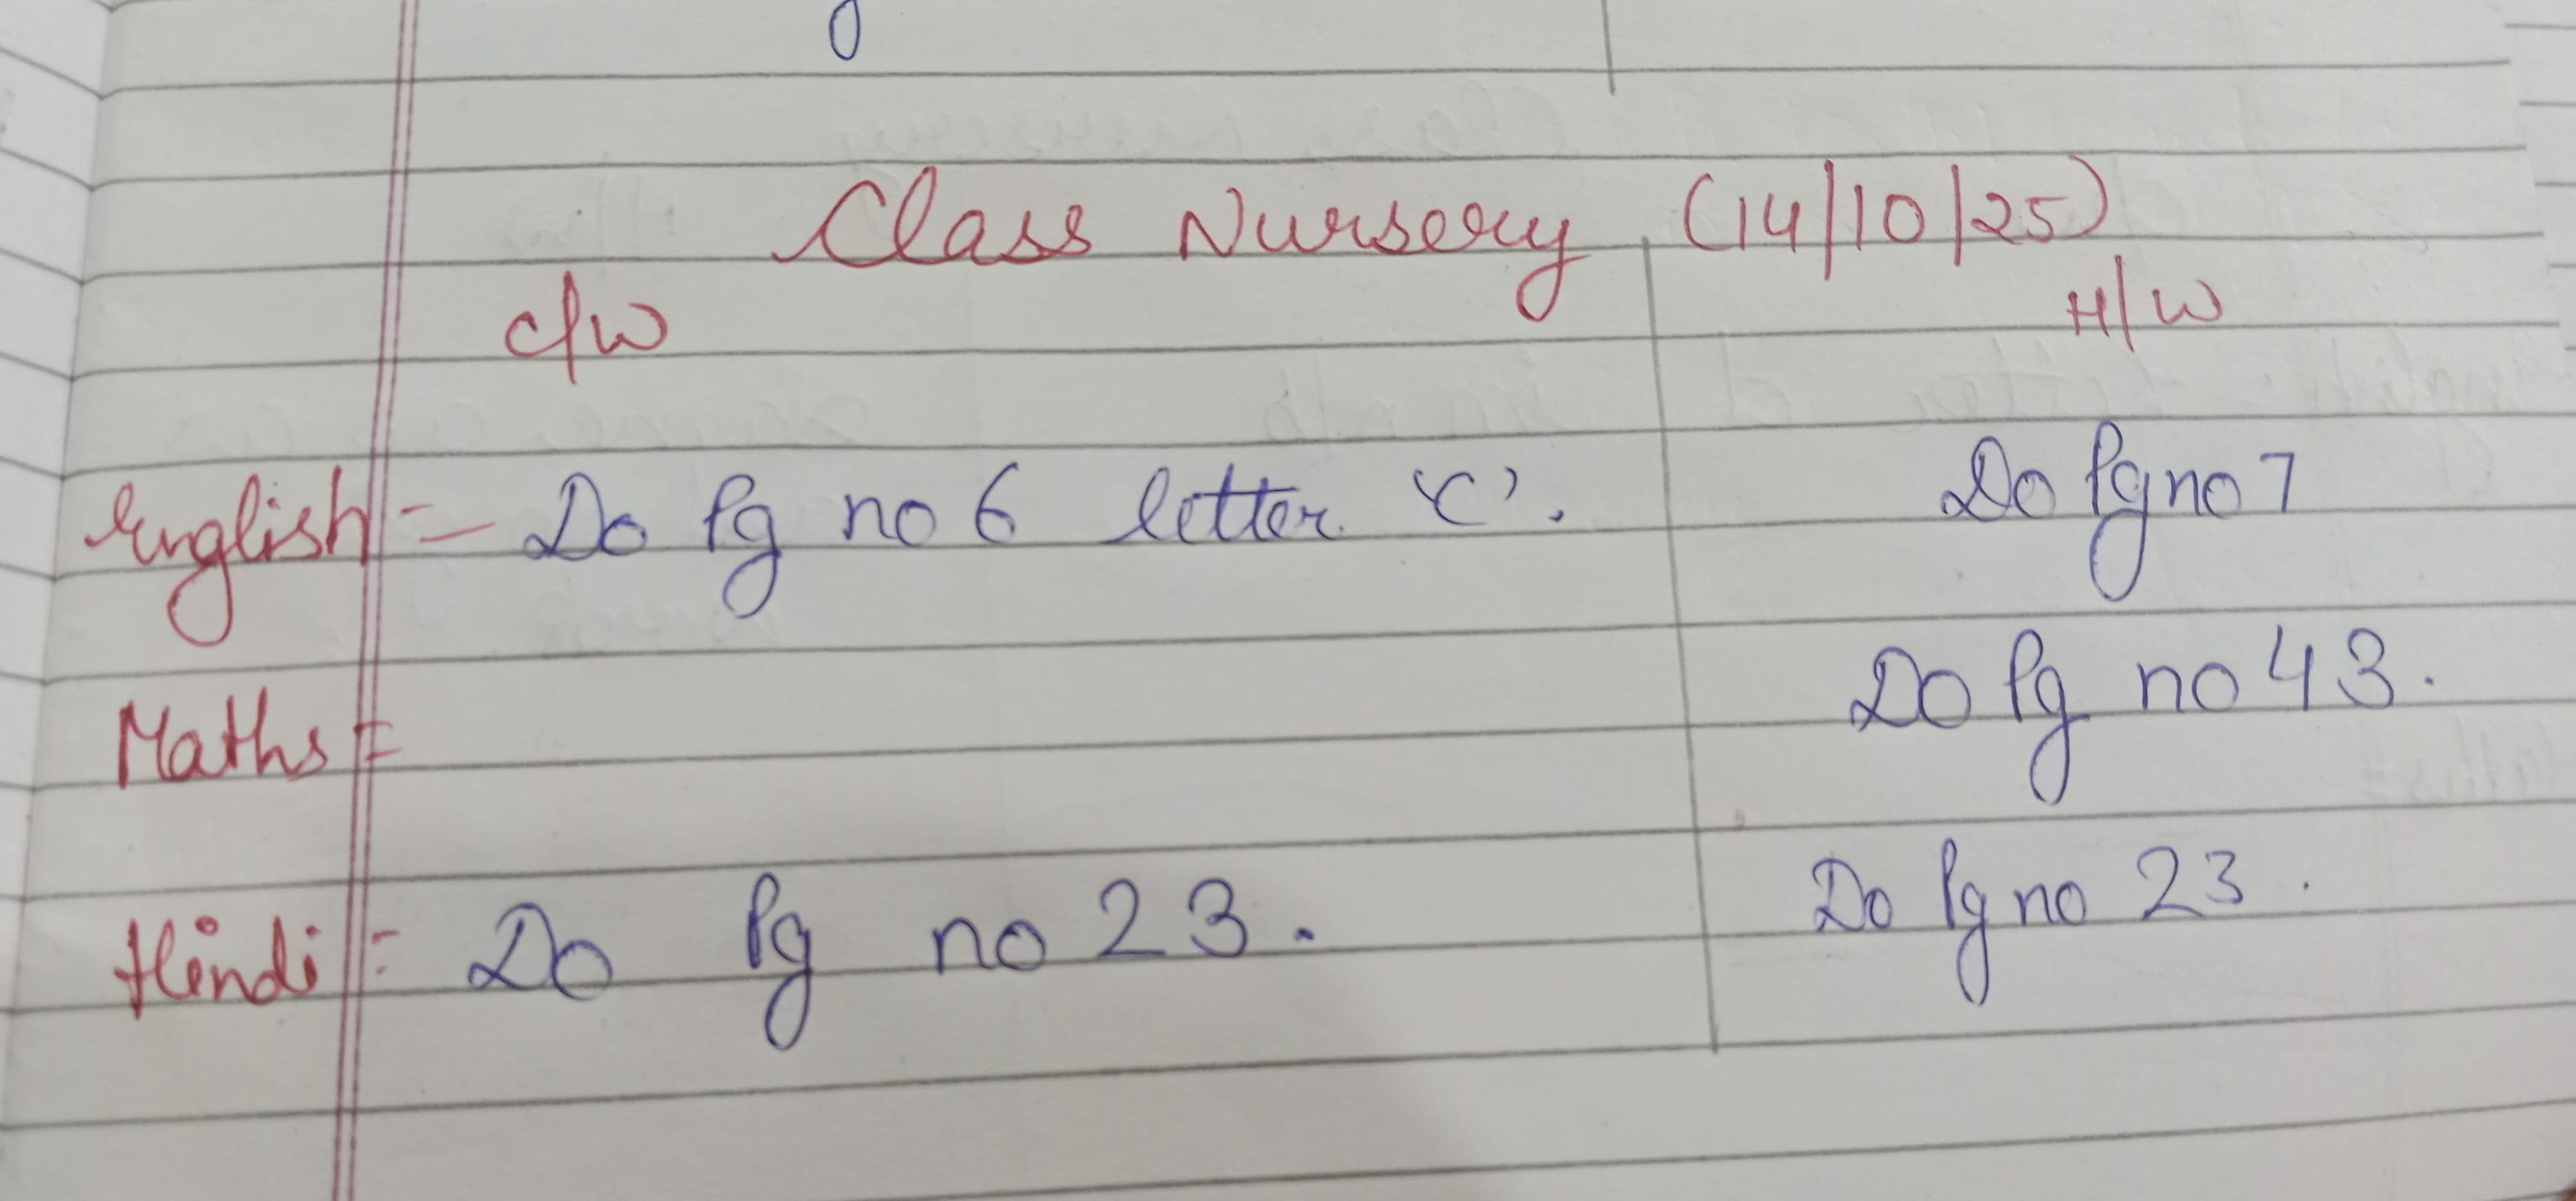 Class Nursery (14/10/25)
C/W H/W
English = Do Pg no 6 letter 'C'. Do Pg no 7
Maths = Do Pg no 43.
Hindi = Do Pg no 23. Do Pg no 23.